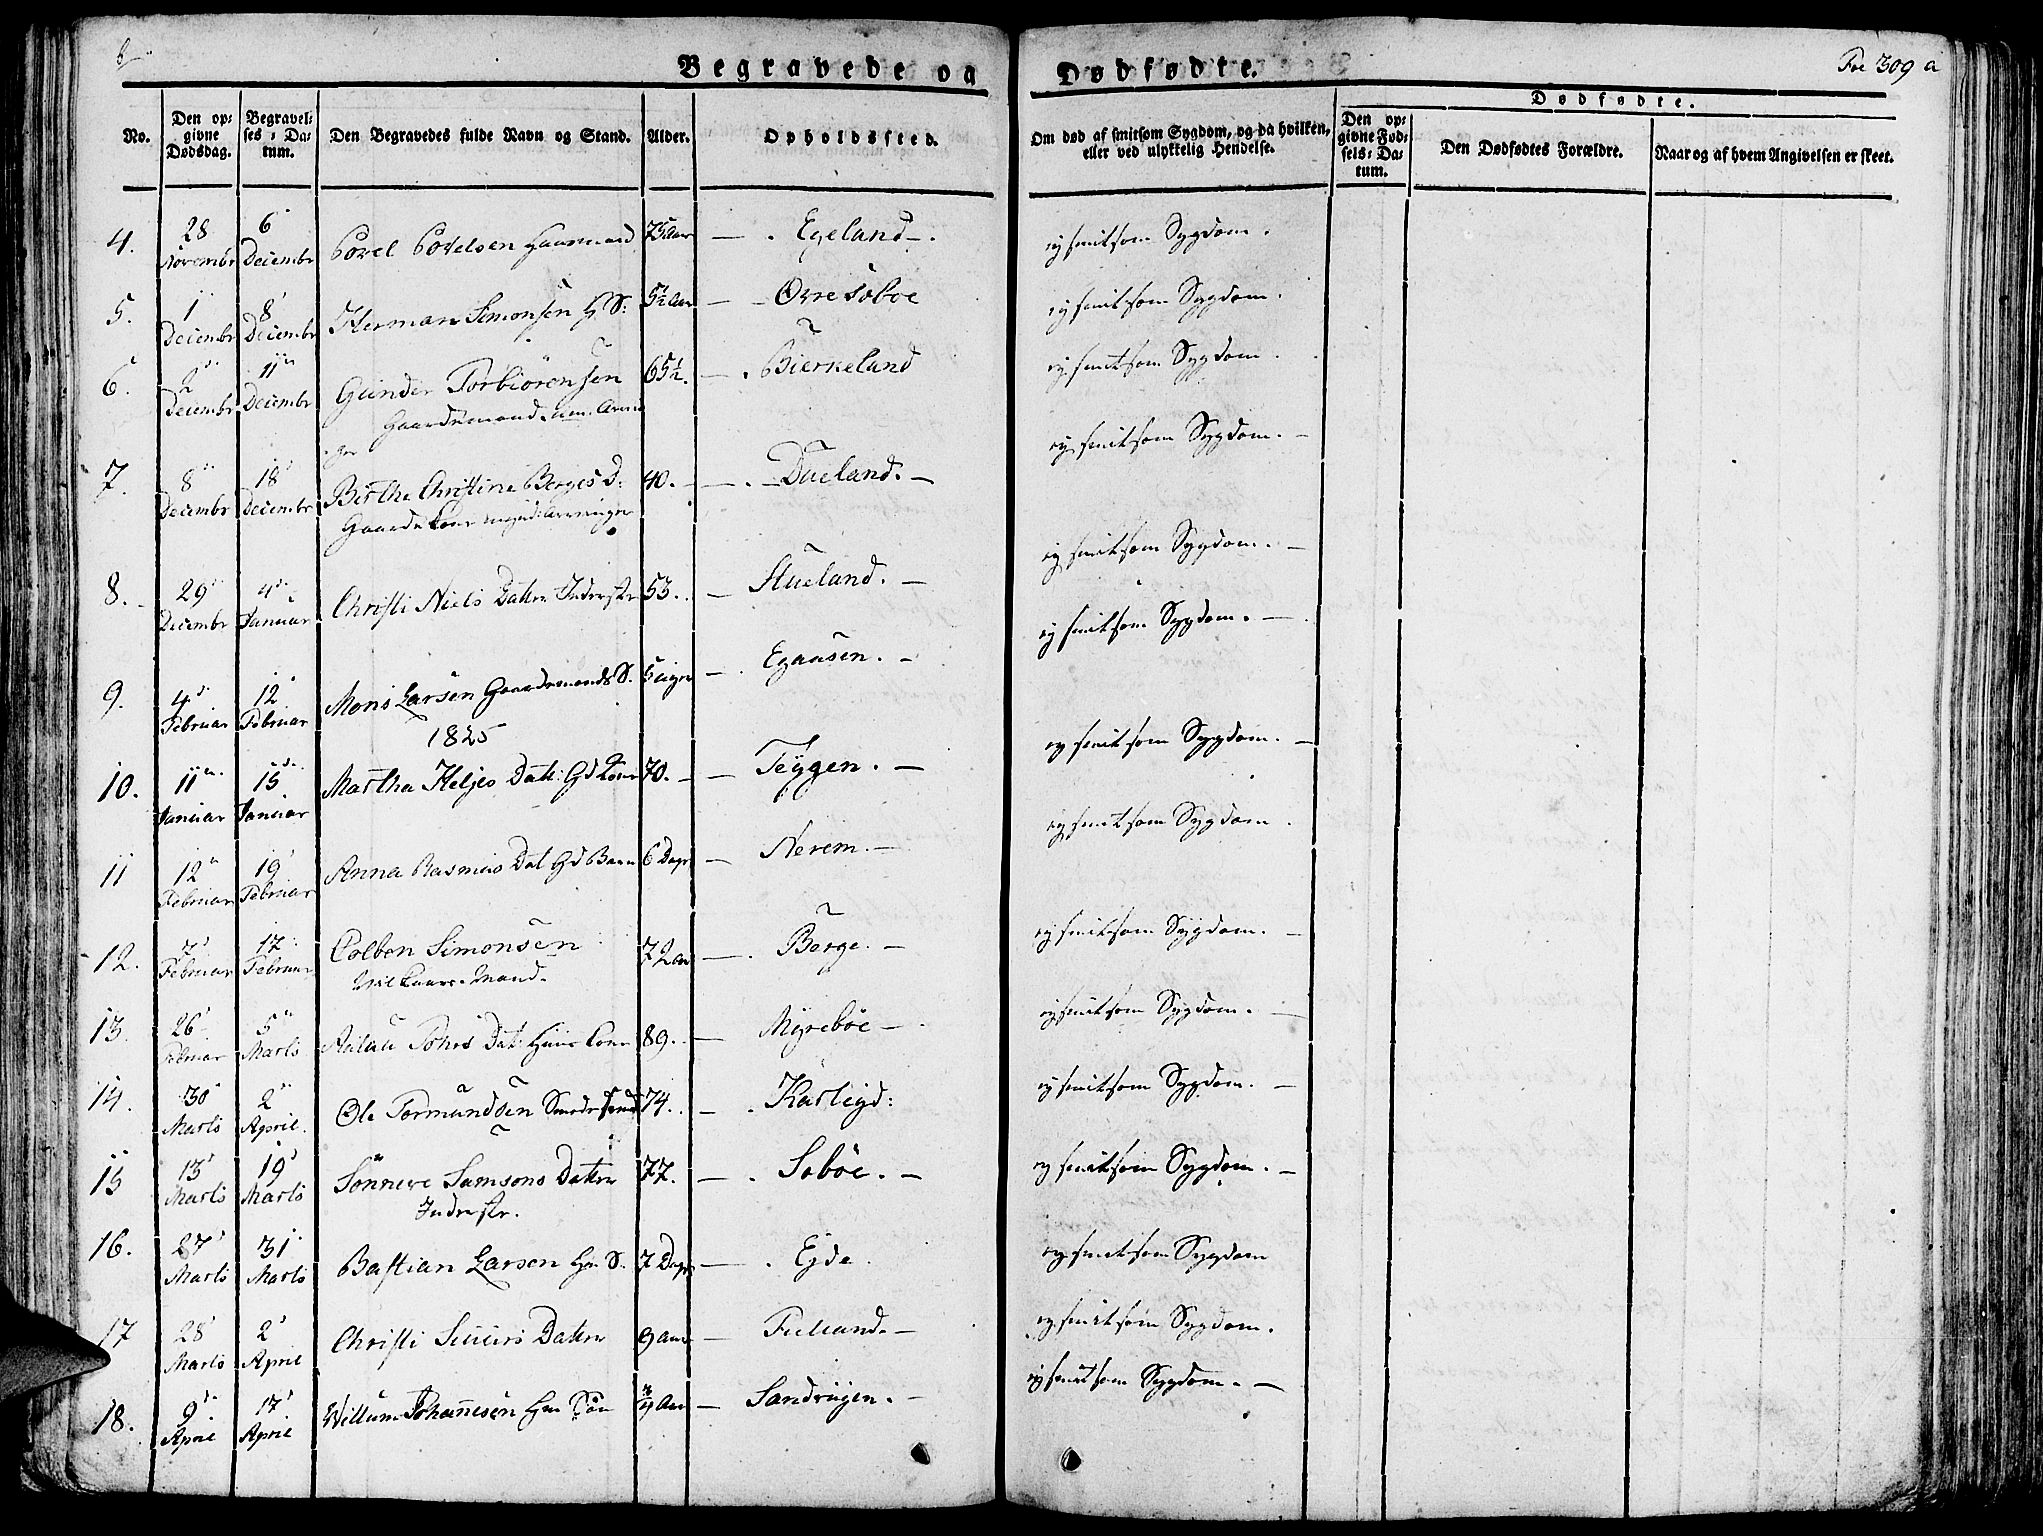 Begravede og Dødfødte.
Foe 309 a
No.
Den opgivne Dødsdag.
Begravelses-Datum.
Den Begravedes fulde Navn og Stand.
Alder.
Opholdssted.
Om død af smitsom Sygdom, og da hvilken, eller ved ulykkelig Hendelse.
Dødfødte.
Den opgivne Fødsels-Datum.
Den Dødfødtes Forældre.
Naar og af hvem Angivelsen er skeet.
4. 28 Novembr 6 Decembr Povel Povelsen 75 Aar — Egeland — ej smitsom Sygdom.
5. 1 Decembr 8 Decembr Herman Simonsen G S: 5½ Aar — Øvre Søboe ej smitsom Sygdom.
6. 2 Decembr 11 Decembr Gunder Torbiörensen 65½. — Bierkeland ej smitsom Sygdom.
Gaardemand
7. 8 Decembr 18 Decembr Birthe Christine Berges D: 40. — Dueland. — ej smitsom Sygdom. —
Gaardekone
8. 29 Decembr 4 Januar Christi Niels Datter Inderstr 53. — Stueland. — ej smitsom Sygdom. —
9. 4 Februar 12 Februar Mons Larsen Gaardemands S. 5 uger — Egaasen. — ej smitsom Sygdom. —
1825
10. 11 Januar 15 Januar Martha Heljes Datt: Gd Kone 70. — Teygen. — ej smitsom Sygdom. —
11 12 Februar 19 Februar Anna Rasmus Dat Gd Barn 6 Dage — Nerem. — ej smitsom Sygdom.
12. 7 Februar 17 Februar Colben Simonsen 72 aar — Berge. — ej smitsom Sygdom. —
Vilkaars Mand.
13. 26 Februar 5 Marts Dat: Huus Kone 89. — Myreböe — ej smitsom Sygdom. —
14. 30 Marts 2 April. Ole Tormundsen 74. — ej smitsom Sygdom. —
15 13 Marts 19 Marts Sönneve Samsons Datter 77. — Soböe. — ej smitsom Sygdom. —
Inderstr.
16. 27 Marts 31 Marts Bastian Larsen S. 7 Dage — Ejde. ej smitsom Sygdom
17 28 Marts 2 April Christi Datter 9 aar — ej smitsom Sygdom.
18. 9 April 17 April Willum Johannesen Sön Aar — ej smitsom Sygdom. —